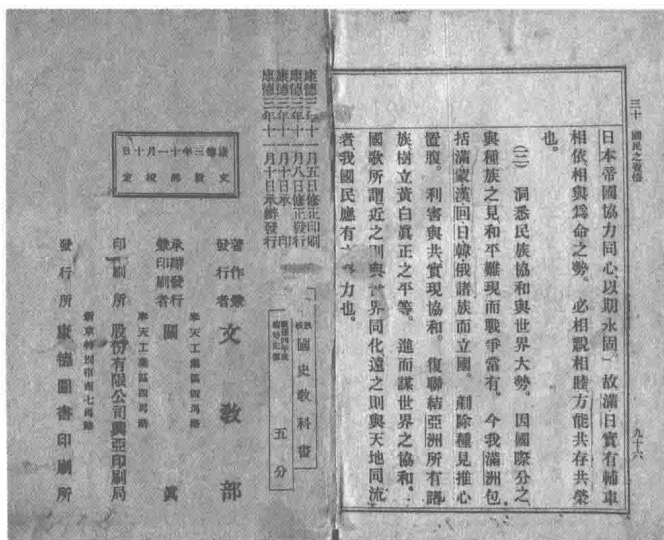 三十　國民之覺悟
九十六
日本帝國協力同心以期永固」故滿日實有輔車
相依相與爲命之勢。必相親相睦方能共存共榮
也。
(三)　洞悉民族協和與世界大勢。因國際分之
與種族之見和平難現而戰爭當有。今我滿洲包
括滿蒙漢回日韓俄諸族而立國。剷除種見推心
置腹。利害與共實現協和。復聯結亞洲所有諸
族樹立黃白眞正之平等。進而謀世界之協和。
國歌所謂近之則與世界同化遠之則與天地同流
者我國民應有之努力也。
國史敎科書
五分
康德三年十一月五日修正印刷
康德三年十一月八日修正發行
康德三年十一月十日承印
康德三年十一月十日承辦發行
康德三年十一月十日
文敎部檢定
著作兼發行者　文敎部
奉天工業區四馬路
承辦發行兼印刷者
奉天工業區四馬路
印刷所　股份有限公司興亞印刷局
發行所　康德圖書印刷所